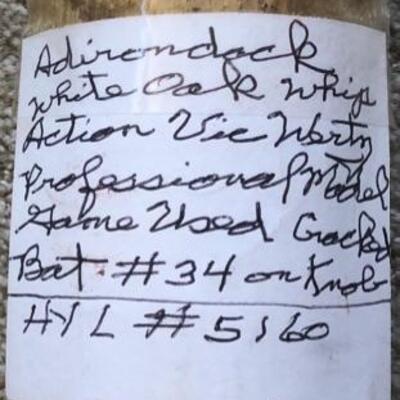 Adirondack
White Oak Whip
Action Vic Wertz
Professional Model
Game Used Cracked
Bat #34 on Knob
HYL #5160